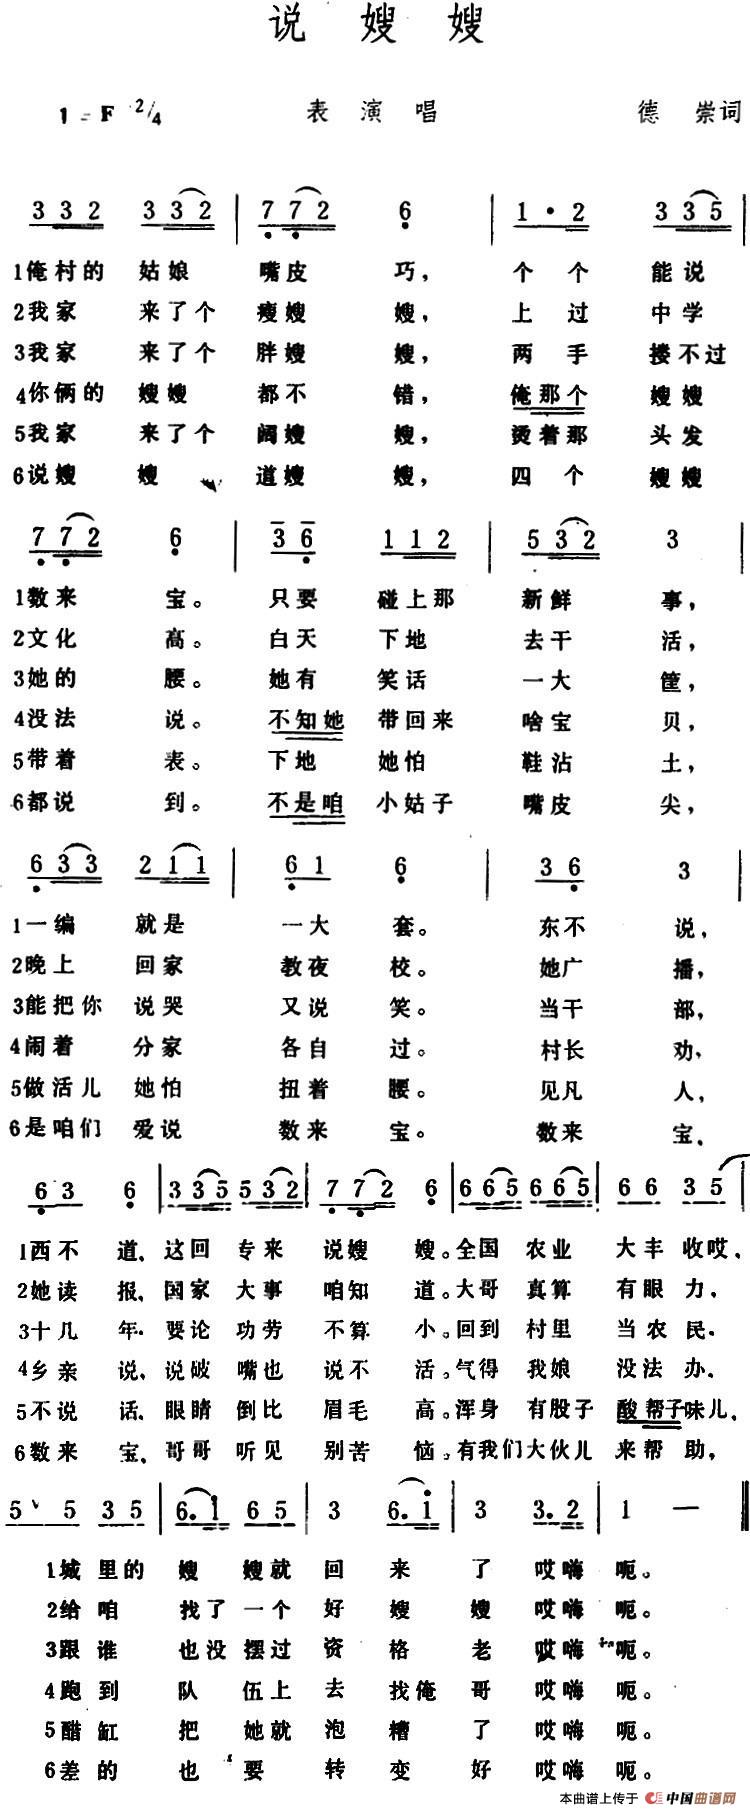 说 嫂 嫂
1 = F 2/4 表 演 唱 德 崇词
3 3 2 3 3 2 | 7 7 2 6 | 1 · 2 3 3 5 |
1俺村的 姑娘 嘴皮 巧， 个 个 能说
2我家 来了个 瘦嫂 嫂， 上 过 中学
3我家 来了个 胖嫂 嫂， 两 手 搂不过
4你俩的 嫂嫂 都不 错， 俺那个 嫂嫂
5我家 来了个 阔嫂 嫂， 烫着那 头发
6说嫂 嫂 道嫂 嫂， 四 个 嫂嫂
7 7 2 6 | 3 6 1 1 2 | 5 3 2 3 |
1数来 宝。 只要 碰上那 新鲜 事，
2文化 高。 白天 下地 去干 活，
3她的 腰。 她有 笑话 一大 筐，
4没法 说。 不知她 带回来 啥宝 贝，
5带着 表。 下地 她怕 鞋沾 土，
6都说 到。 不是咱 小姑子 嘴皮 尖，
6 3 3 2 1 1 | 6 1 6 | 3 6 3 |
1一编 就是 一大 套。 东不 说，
2晚上 回家 教夜 校。 她广 播，
3能把你 说哭 又说 笑。 当干 部，
4闹着 分家 各自 过。 村长 劝，
5做活儿 她怕 扭着 腰。 见凡 人，
6是咱们 爱说 数来 宝。 数来 宝，
6 3 6 | 3 3 5 5 3 2 | 7 7 2 6 | 6 6 5 6 6 5 | 6 6 3 5 |
1西不 道，这回 专来 说嫂 嫂。全国 农业 大丰 收哎，
2她读 报，国家 大事 咱知 道。大哥 真算 有眼 力，
3十几 年，要论 功劳 不算 小。回到 村里 当农 民，
4乡亲 说，说破 嘴也 说不 活。气得 我娘 没法 办，
5不说 话，眼睛 倒比 眉毛 高。浑身 有股子 酸帮子味儿，
6数来 宝，哥哥 听见 别苦 恼。有我们 大伙儿 来帮 助，
5 5 3 5 | 6. i 6 5 | 3 6. i | 3 3. 2 | 1 — ‖
1城里的 嫂 嫂就 回 来 了 哎嗨 呃。
2给咱 找了 一个 好 嫂 嫂 哎嗨 呃。
3跟谁 也没 摆过 资 格 老 哎嗨 呃。
4跑到 队 伍上 去 找俺 哥 哎嗨 呃。
5醋缸 把 她就 泡 糟 了 哎嗨 呃。
6差的 也 要 转 变 好 哎嗨 呃。
本曲谱上传于 中国曲谱网